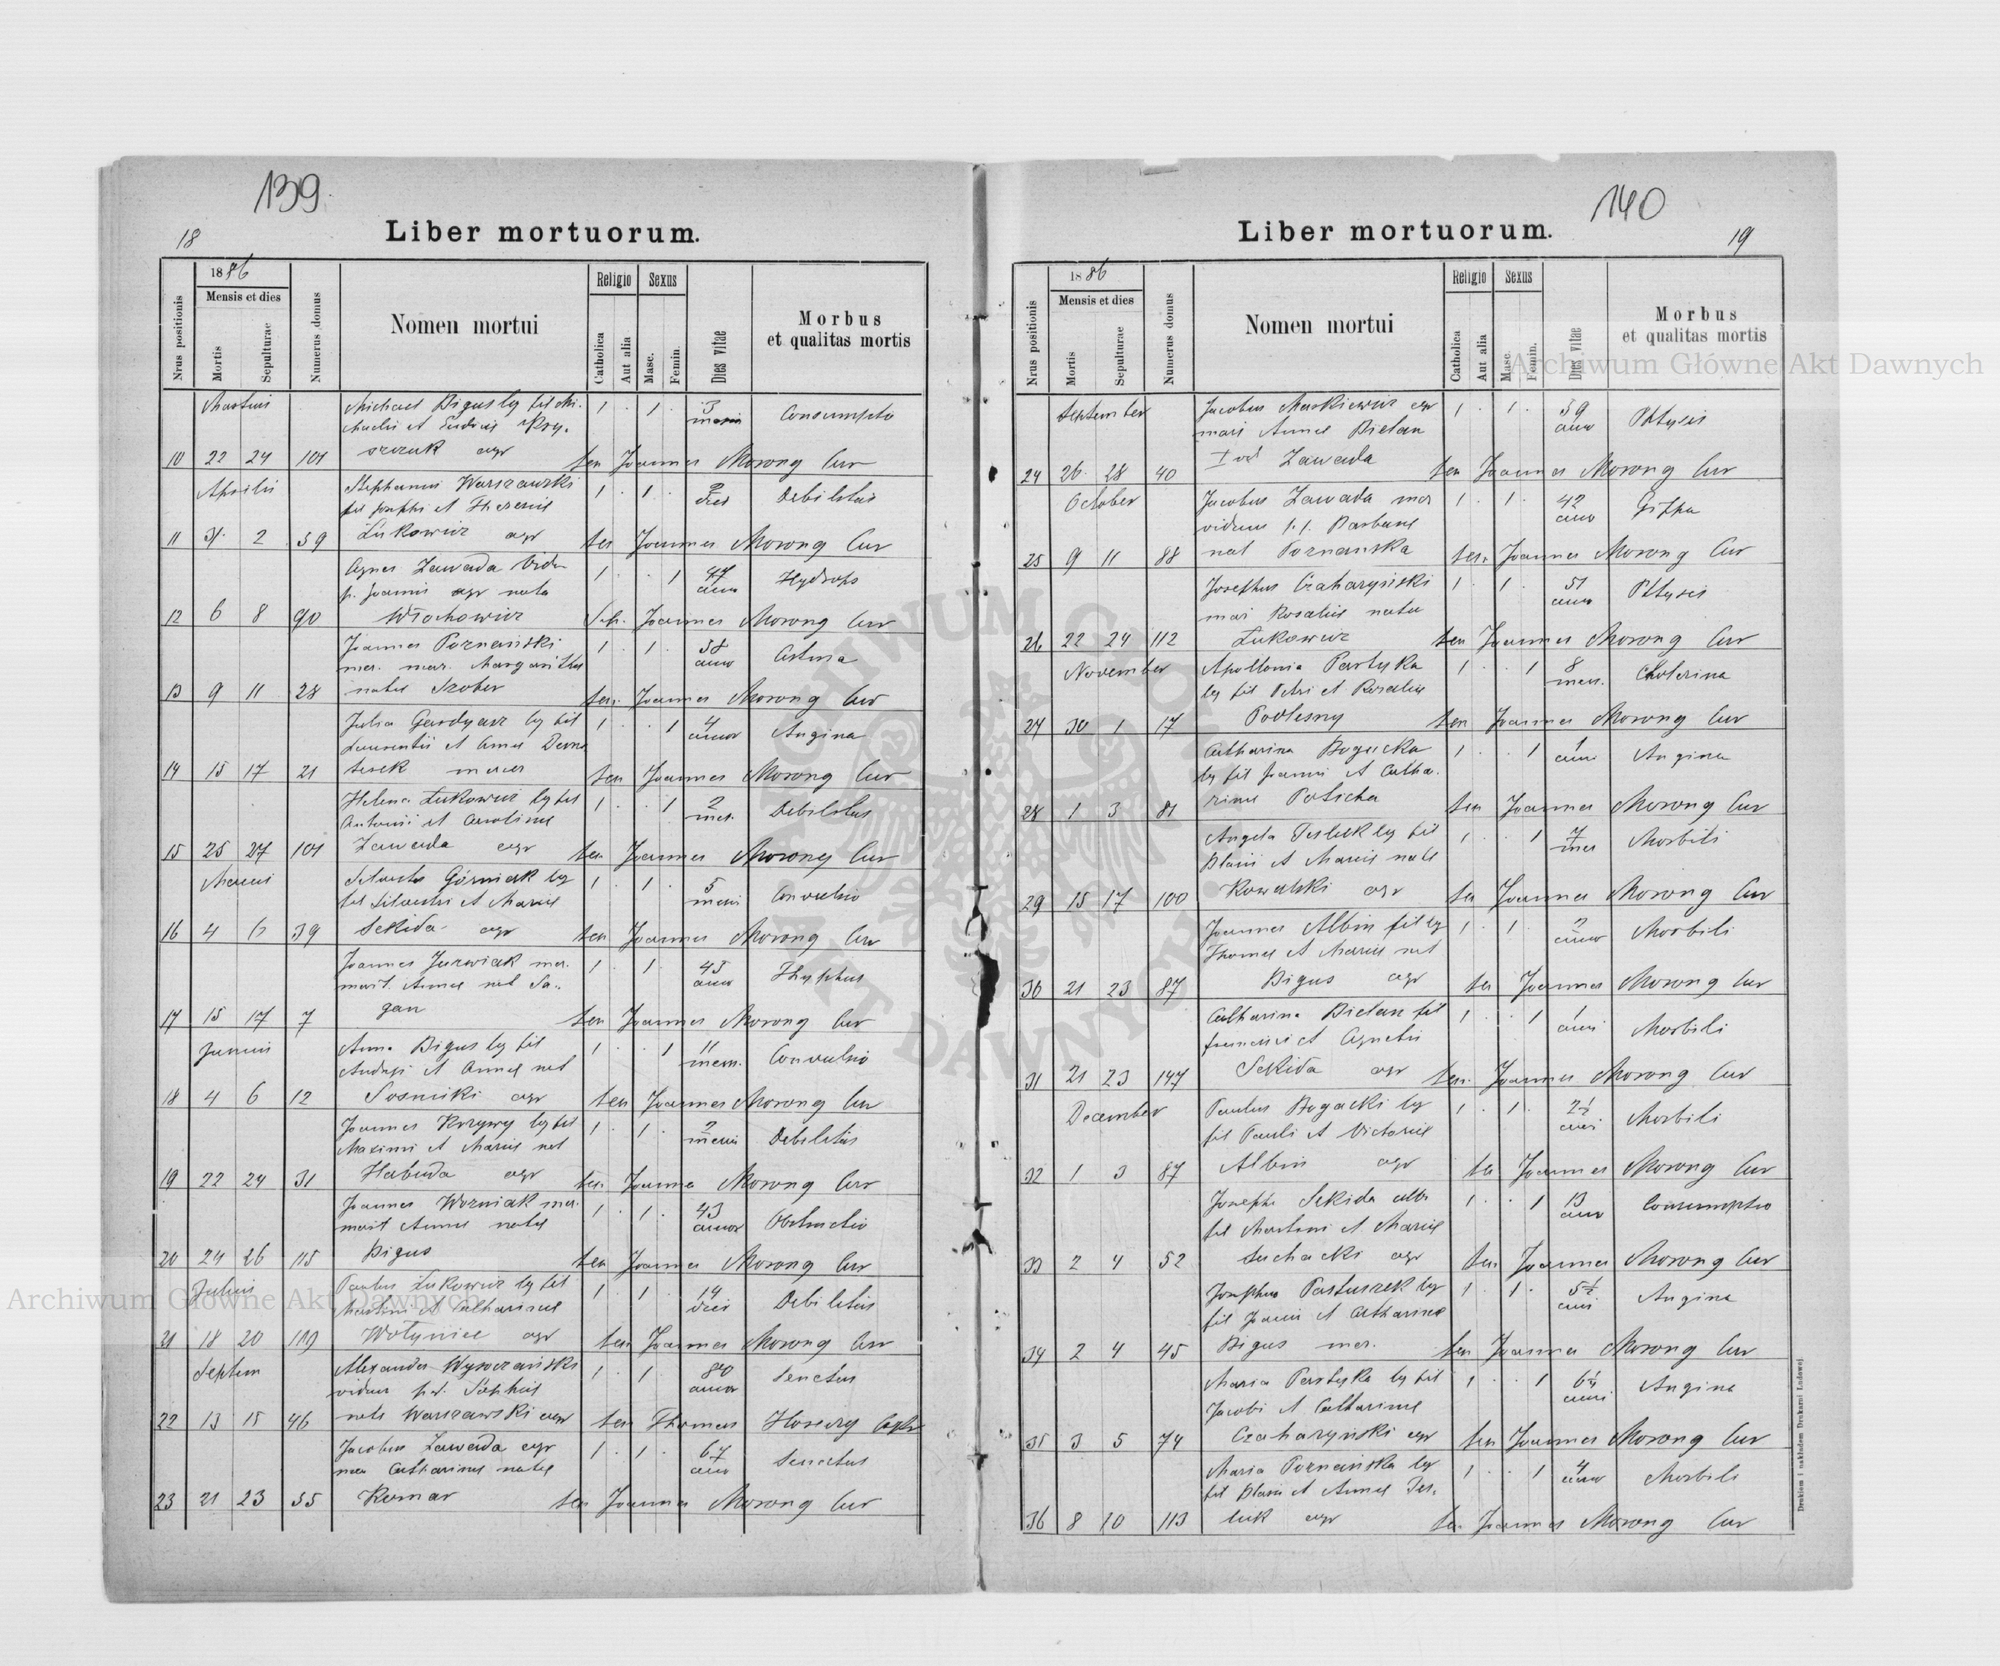 139
18
Liber mortuorum.
Nrus positionis
1886
Mensis et dies
Mortis
Sepulturae
Numerus domus
Nomen mortui
Religio
Catholica
Aut alia
Sexus
Masc.
Femin.
Dies vitae
Morbus
et qualitas mortis
Martius
Michael Bigus lg fil Mi-
chaelis et
1 . 1 . 3
Consumptio
10 22 24 101 agr
ten Joannes Morong Cur
Aprilis
Stephanus Warszawski
fil Josephi et Theresiae
1 . 1 .
dies
Debilitas
11 31. 2 59 Łukowicz agr
ten Joannes Morong Cur
Agnes Zawada vidu
p. Joannis agr nata
1 . . 1 47
ann
Hydrops
12 6 8 90 Włochowicz
Joannes Morong Cur
Joannes Poznański
mer. mar. Margarithae
1 . 1 . 58
anno
Astma
13 9 11 28 natae Szober
ten Joannes Morong Cur
Julia Gardyasz lg fil
Laurentii et Annae
1 . . 1 4
annor
Angina
14 15 17 21
ten Joannes Morong Cur
Helena Łukowicz lg fil
Antonii et Carolinae
1 . . 1 2
mes.
Debilitas
15 25 27 101 Zawada agr
ten Joannes Morong Cur
Silvester Górniak lg
fil Silvestri et Mariae
1 . 1 . 5
mens
Convulsio
16 4 6 39 Sekida agr
ten Joannes Morong Cur
Joannes Jurwiak mer.
marit. Annae nat Sa-
1 . 1 . 45
anno
Thyphus
17 15 17 7 gan
ten Joannes Morong Cur
Junius
Anna Bigus lg fil
Andreji et Annae nat
1 . . 1 11
mens.
Convulsio
18 4 6 12 Sosnicki agr
ten Joannes Morong Cur
Joannes Korzywy lg fil
Maximi et Mariae nat
1 . 1 . 2
mens
Debilitas
19 22 24 31 Habuda agr
ten Joannes Morong Cur
Joannes Wozniak mer.
marit Annae natae
1 . 1 . 43
annor
Obstructio
20 24 26 115 Bigus
ten Joannes Morong Cur
Julius
Paulus Łukowicz lg fil
Martini et Catharinae
1 . 1 . 14
dies
Debilitas
21 18 20 119 Wołyniec agr
ten Joannes Morong Cur
Septem
Alexander Wysoczański
viduus p. Sophiae
1 . 1 80
annor
Senectus
22 13 15 46 nate Warszawski agr
ten Thomas
Jacobus Zawada agr
mar Catharinae natae
1 . 1 67
ann
Senectus
23 21 23 55 Komar
ten Joannes Morong Cur
140
19
Liber mortuorum.
Nrus positionis
1886
Mensis et dies
Mortis
Sepulturae
Numerus domus
Nomen mortui
Religio
Catholica
Aut alia
Sexus
Masc.
Femin.
Dies vitae
Morbus
et qualitas mortis
September
Jacobus Maskiewicz agr
mari Annae Bielan
1 . 1 . 59
anno
Phtysis
24 26 28 40 Zawada
ten Joannes Morong Cur
October
Jacobus Zawada mer
viduus p. p. Barbarae
1 . 1 . 42
anno
25 9 11 88 nat Poznańska
ten Joannes Morong Cur
Josephus Czaharyński
mar Rosaliae natae
1 . 1 . 51
anno
Phtysis
26 22 24 112 Łukowicz
ten Joannes Morong Cur
November
Apollonia Partyka
lg fil Petri et Rosaliae
1 . . 1 8
men.
Cholerina
27 30 1 17 Podlesny
ten Joannes Morong Cur
Catharina Bogacka
lg fil Joanni et Catha-
1 . . 1 1
anni
Angina
28 1 3 81 rinae Poticha
ten Joannes Morong Cur
Angela Tesluk lg fil
Blasii et Mariae nate
1 . . 1 7
mes
Morbili
29 15 17 100 Kowalski agr
ten Joannes Morong Cur
Joannes Albin fil lg
Thomae et Mariae nat
1 . 1 . 2
anno
Morbili
30 21 23 87 Bigus agr
ten Joannes Morong Cur
Catharina Bielan fil
francisci et Agnetis
1 . . 1 1
anni
Morbili
31 21 23 147 Sekida agr
ten Joannes Morong Cur
December
Paulus Bogacki lg
fil Pauli et Victoriae
1 . 1 . 2½
anni
Morbili
32 1 3 87 Albin agr
ten Joannes Morong Cur
Josepha Sekida
fil Martini et Mariae
1 . . 1 13
ann
Consumptio
33 2 4 52 Suchacki agr
ten Joannes Morong Cur
Josephus Pastuszek lg
fil Joanni et Catharinae
1 . 1 . 5½
anni
Angina
34 2 4 45 Bigus mer.
ten Joannes Morong Cur
Maria Partyka lg fil
Jacobi et Catharinae
1 . . 1 6¼
anni
Angina
35 3 5 74 Czaharyński agr
ten Joannes Morong Cur
Maria Poznańska lg
fil Blasii et Annae Tes-
1 . . 1 4
anno
Morbili
36 8 10 113 luk agr
ten Joannes Morong Cur
Drukiem i nakładem Drukarni Ludowej
Archiwum Główne Akt Dawnych
Archiwum Główne Akt Dawnych
ARCHIWUM GŁÓWNE AKT DAWNYCH